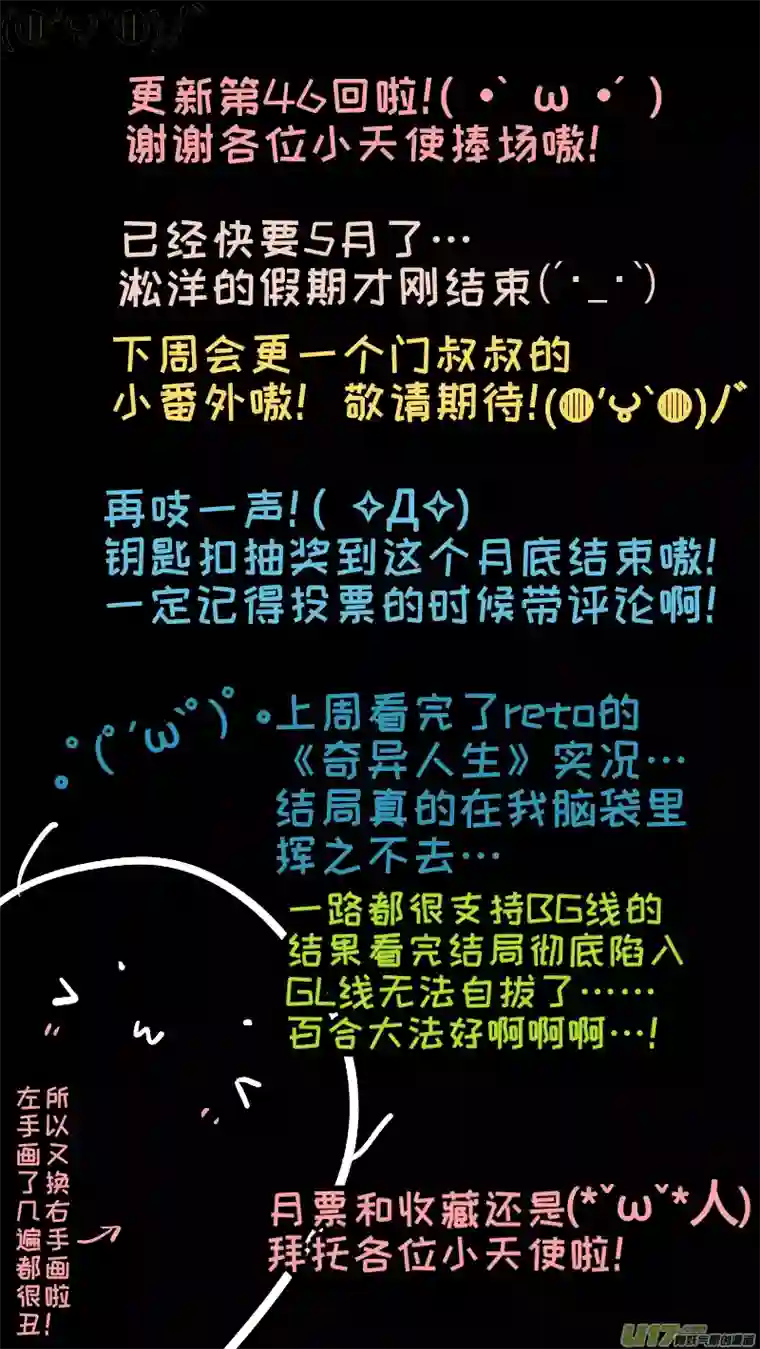 更新第46回啦!( •̀ ω •́ )
谢谢各位小天使捧场嗷!
已经快要5月了…
淞洋的假期才刚结束(´･_･`)
下周会更一个门叔叔的
小番外嗷! 敬请期待!(◍′౪`◍)ﾉﾞ
再吱一声!( ✧Д✧)
钥匙扣抽奖到这个月底结束嗷!
一定记得投票的时候带评论啊!
｡ﾟ(ﾟ´ω`ﾟ)ﾟ｡
上周看完了reto的
《奇异人生》实况…
结局真的在我脑袋里
挥之不去…
一路都很支持BG线的
结果看完结局彻底陷入
GL线无法自拔了……
百合大法好啊啊啊…!
所以又换右手画啦
左手画了几遍都很丑!
月票和收藏还是(*˘ω˘*人)
拜托各位小天使啦!
U17.COM